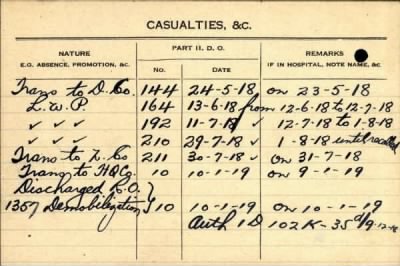 CASUALTIES, &C.
NATURE PART II, D. O. REMARKS
E.G. ABSENCE, PROMOTION, &C. NO. DATE IF IN HOSPITAL, NOTE NAME, &C.
Trans to D. Co. 144 24-5-18 on 23-5-18
L. W. P. 164 13-6-18 from 12-6-18 to 12-7-18
✓ ✓ ✓ 192 11-7-18 ✓ 12-7-18 to 1-8-18
✓ ✓ ✓ 210 29-7-18 ✓ 1-8-18 until recalled
Trans to L. Co 211 30-7-18 ✓ on 31-7-18
Trans to HQ Co. 10 10-1-19 on 9-1-19
Discharged R.O. }
1357 Demobilization } 10 10-1-19 on 10-1-19
Auth 1 D 102 K-35 d/9-12-18